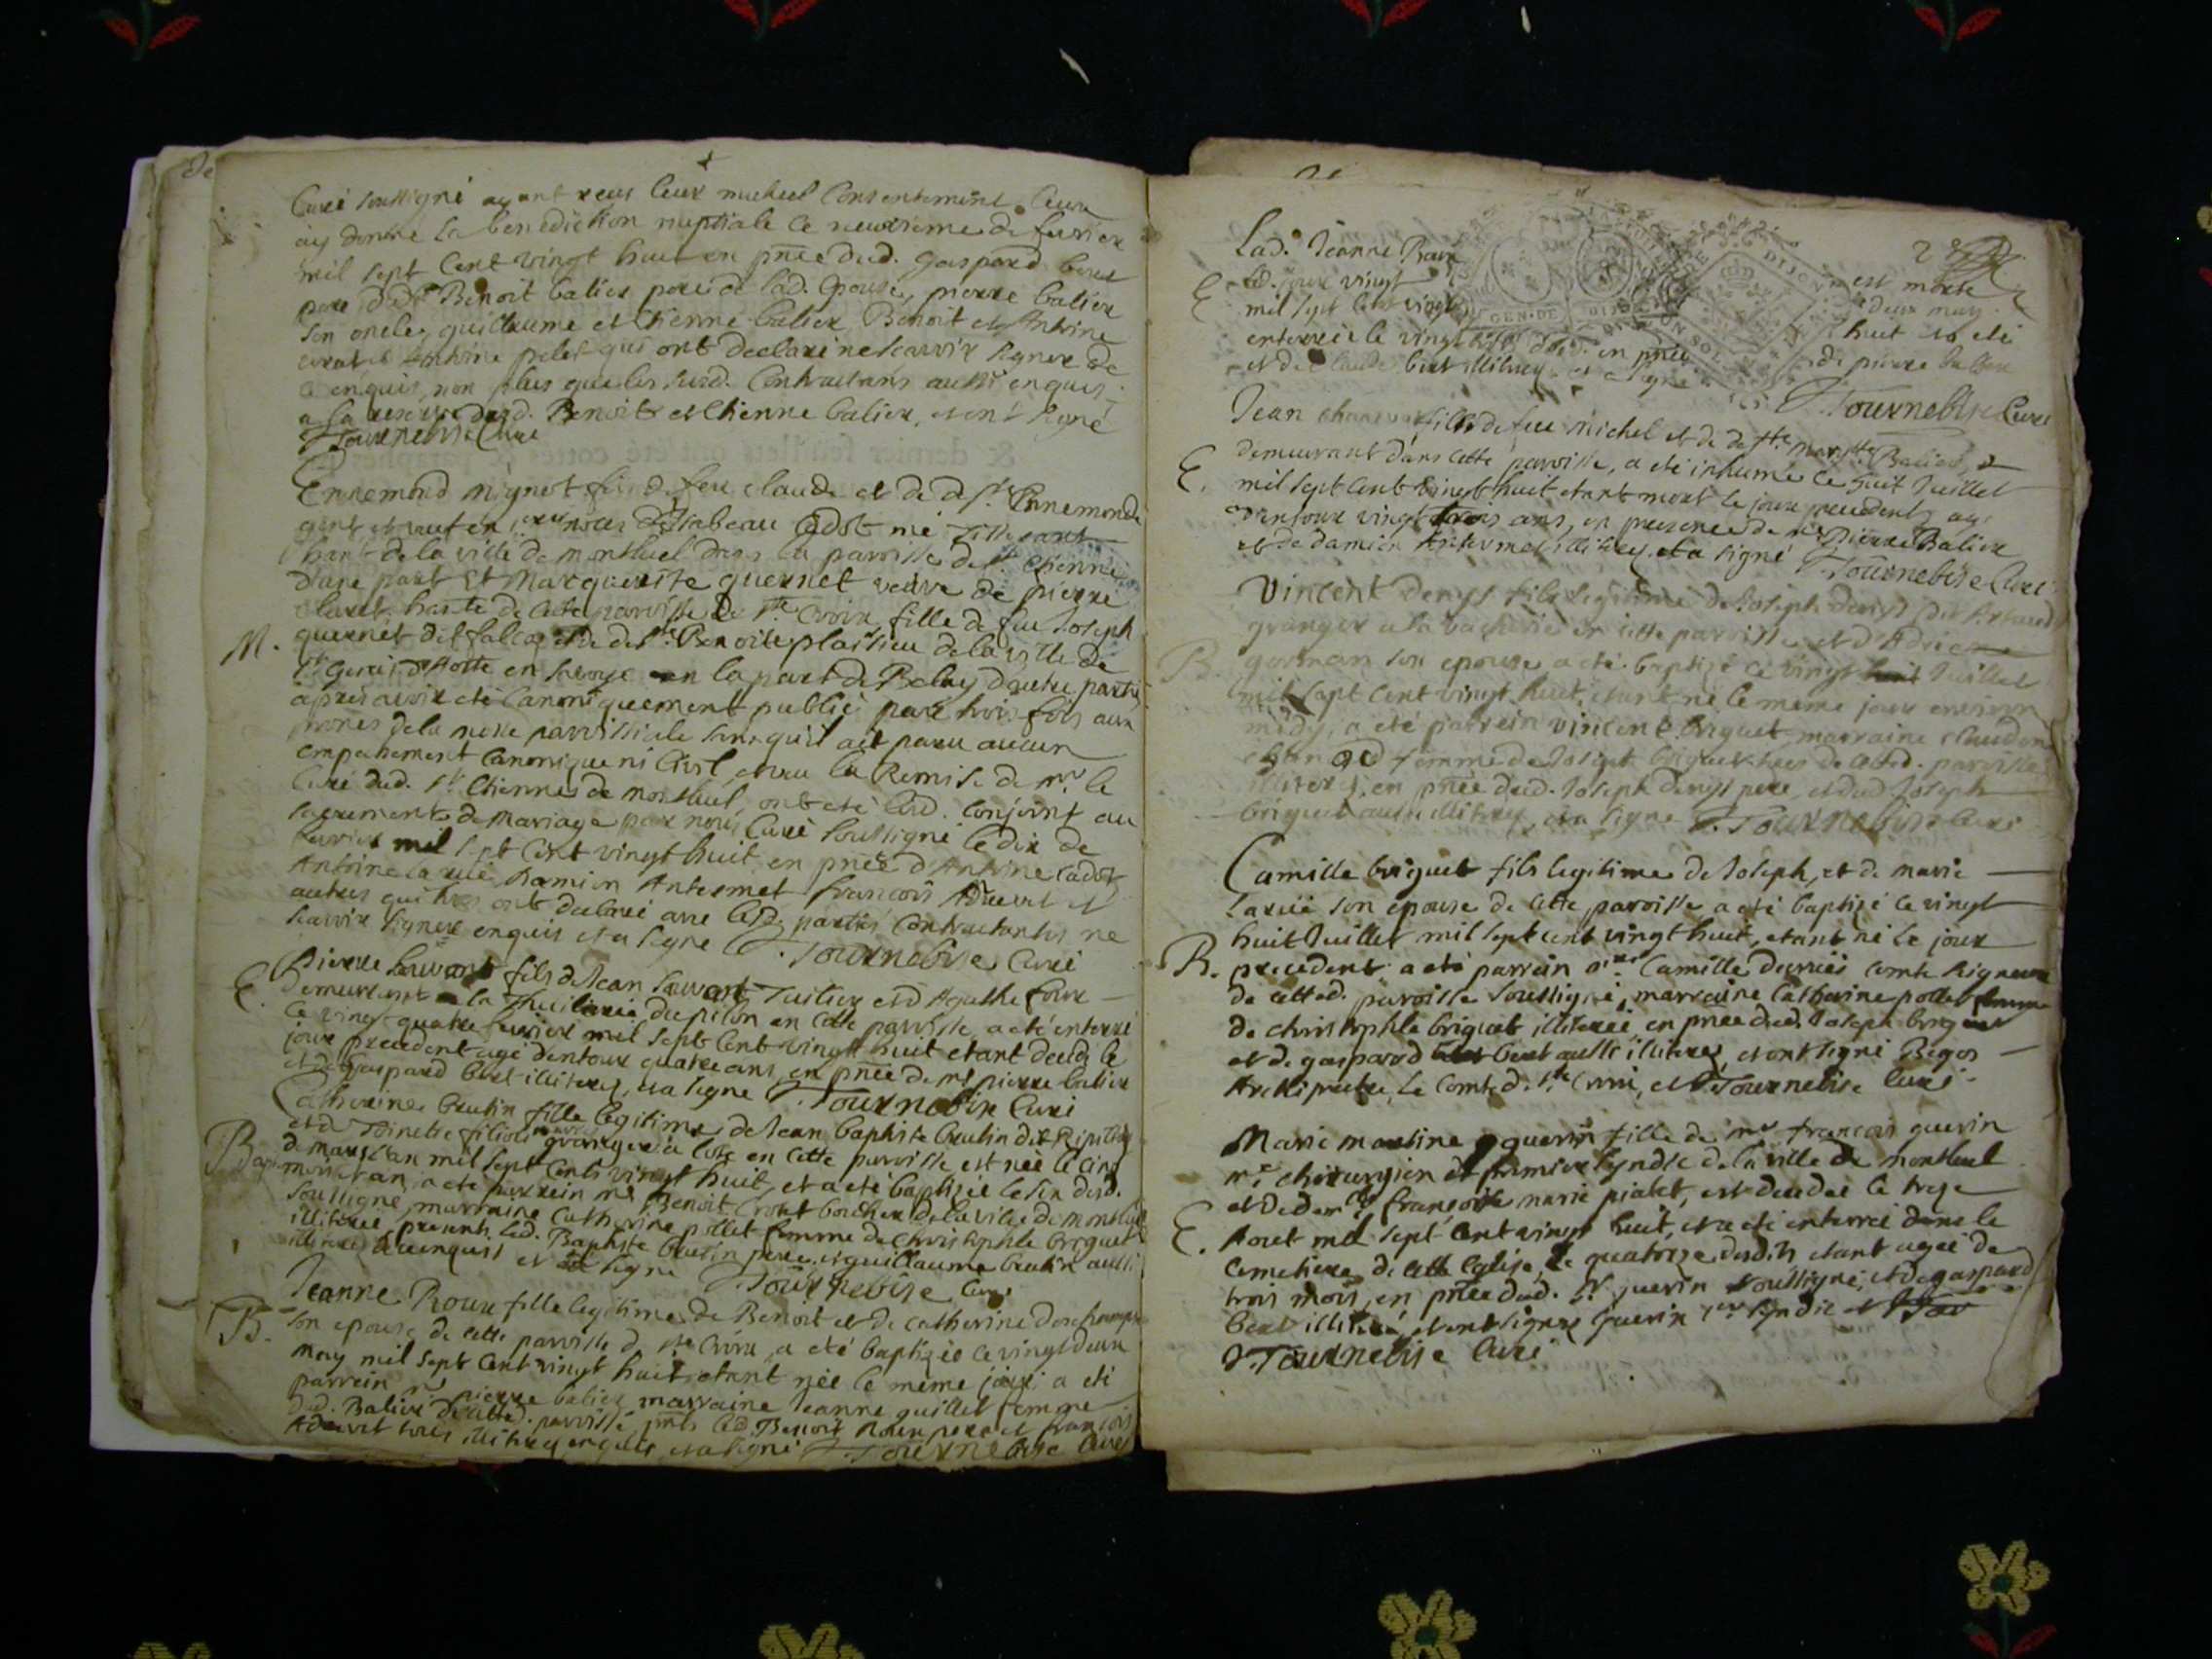 Curé soussigné ayant reçus leur mutuel consentement leur
ay donné la benediction nuptiale ce neuvieme de fevrier
mil sept cent vingt huit en pñce dud. gaspard beret
pere Benoit balier pere de lad. Epouse, pierre balier
son oncle, guillaume et Etienne balier Benoit et Antoine
et Antoine pelet qui ont declaré ne scavoir signer de
ce enquis, non plus que les susd. Contractans aussi enquis
a la reserve dud. Benoit et Etienne balier, et ont signé
Tournebise Curé
Ennemond mignot fils de feu claude et de de st. Ennemonde
en noces d'Isabeau Cadot me
hant de la ville de montluel dans la paroisse de st. Etienne
d'une part Et Marguerite guernet veuve de pierre
hante de cette paroisse de ste Croix, fille de feu Joseph
M. guernet dit et de Benoite de la ville de
st. en Savoye la part de Belay d'autre part
apres avoir eté Canoniquement publiés par trois fois aux
prones de la messe parroissiale sans quil ait paru aucun
empechement Canonique ni Civil, et vu la Remise de mr. le
Curé dud. st. Etienne de montluel, ont eté lesd. conjoint au
sacrement de Mariage par nous Curé Soussigné le dix de
fevrier mil sept cent vingt huit en pñce d'Antoine Cadot
Antoine Damien Antermet francois et
autres qui ont declaré avec lesd. parties Contractantes ne
scavoir signer enquis et a signé J. Tournebise Curé
Pierre fils de Jean Tuilier et d'Agathe
E. demeurant a la Thuilierie du pilon en cette parroisse a eté enterré
le vingt quatre fevrier mil sept cent vingt huit etant decedé le
jour precedent agé d'entour quatre ans en pñce de mr pierre balier
et de Gaspard beret illiterés, et a signé J. Tournebise Curé
Catherine brutin fille legitime de Jean baptiste brutin dit
et de Toinette granger a la en cette parroisse est née le cinq
Bap. de mars l'an mil sept cent vingt huit, et a eté baptizée le six dud.
mois et an, a eté parrein mr Benoit boucher de la ville de montluel
soussigné marraine Catherine pollet femme de Christophle briguet
illiterée presents led. Baptiste brutin pere, et guillaume brutin aussi
illiterés de enquis et a signé J. Tournebise Curé
Jeanne Roux fille legitime de Benoit et de catherine deschamps
B. son epouse de cette parroisse de ste Croix, a eté baptizée ce vingt deux
may mil sept cent vingt huit etant née le meme jour; a eté
parrein mr pierre balier marraine Jeanne guillet femme
dud. Balier de cetted. parroisse pnts led. Benoit Roux pere et francois
tous illiterés enquis, et a signé J. Tournebise Curé
Lad. Jeanne Roux est morte
E led. jour vingt deux may
mil sept cent vingt huit et a eté
enterrée le vingt dud. en pñce de pierre balier
et de Claude beret illiterés et a signé J. Tournebise Curé
Jean fils de feu Michel et de de ste Balier
demeurant dans cette parroisse, a eté inhumé ce huit Juillet
E. mil sept cent vingt huit etant mort le jour precedent, agé
d'entour vingt trois ans, en presence de mr Pierre Balier
et de damien Antermet illiterés, et a signé J. Tournebise Curé
Vincent denys fils legitime de Joseph denys dit
granger a la vacherie en cette parroisse et d'Adrienne
B. son epouse a eté baptizé ce vingt huit Juillet
mil sept cent vingt huit, etant né le meme jour environ
midy, a eté parrein vincent briguet marraine Claudine
femme de Joseph briguet tous de cetted. parroisse
illiterés, en pñce dud. Joseph denys pere, et dud Joseph
briguet aussi illiterés, et a signé J. Tournebise Curé
Camille briguet fils legitime de Joseph, et de marie
son epouse de cette paroisse a eté baptizé ce vingt
huit Juillet mil sept cent vingt huit, etant né le jour
B. precedent a eté parrein Camille comte seigneur
de cetted. paroisse soussigné, marraine Catherine pollet femme
de christophle briguet illiterée en pñce dud. Joseph briguet
et de gaspard beret aussi illiteré, et ont signé
Archipretre, Le Comte de ste Croix, et J. Tournebise Curé
Marie martine guerin fille de mr francois guerin
mr chirurgien et premier syndic de la ville de montluel
et de demlle francoise marie pialet, est decedée le treze
E. Aout mil sept cent vingt huit, et a eté enterrée dans le
Cemetiere de cette Eglise, le quatorze dudit, etant agée de
trois mois, en pñce dud. sr guerin soussigné, et de gaspard
beret illiteré, et ont signé Guerin 1er syndic et
J. Tournebise Curé